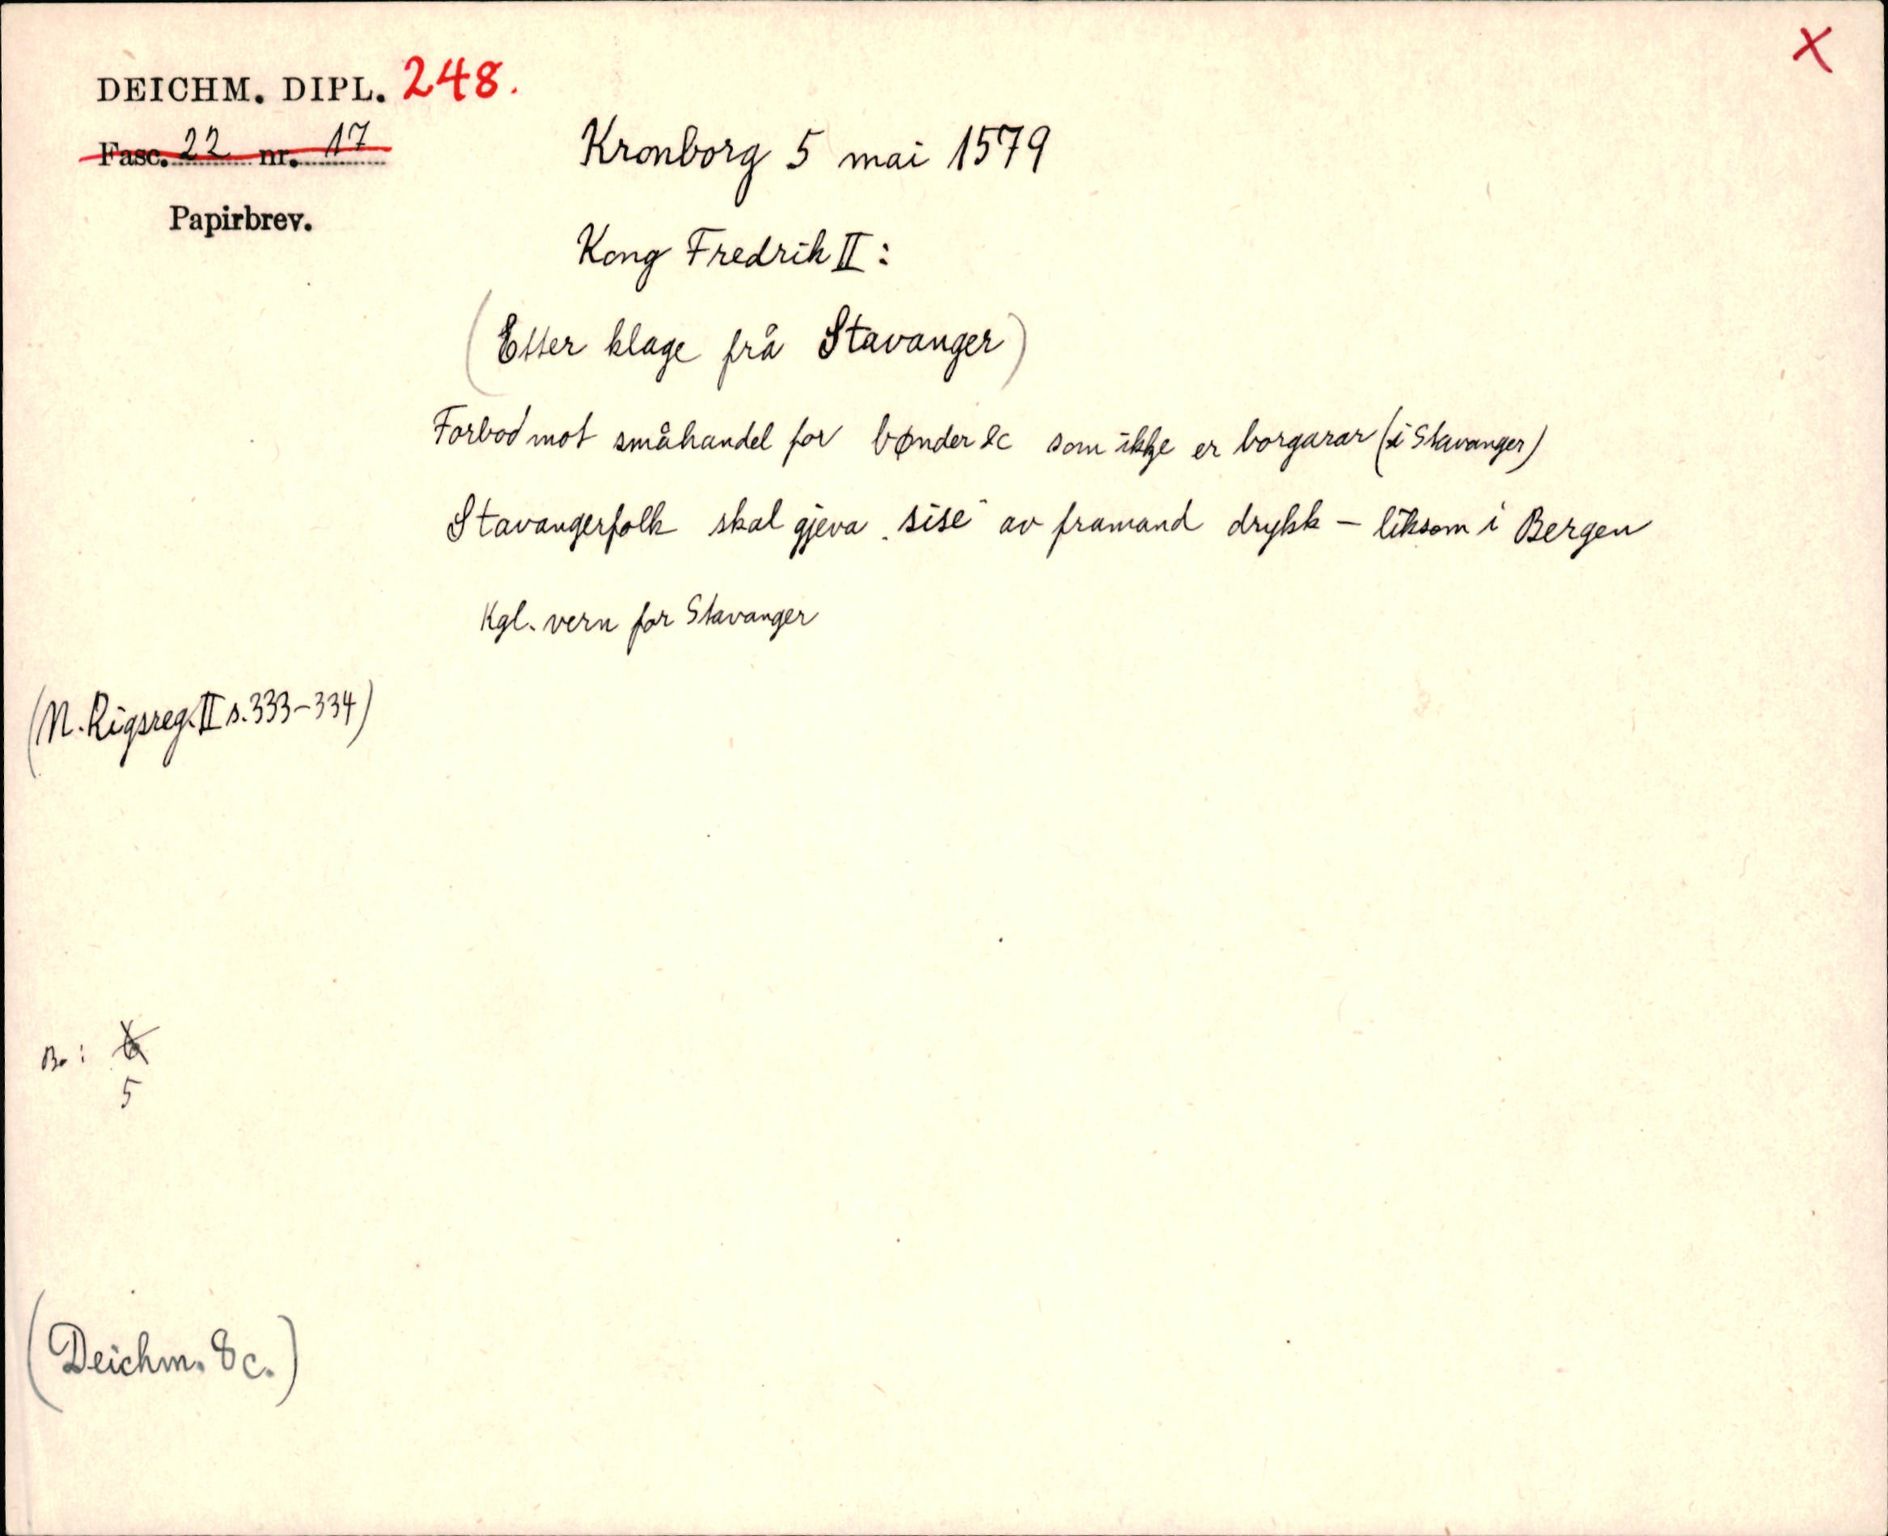 X
DEICHM. DIPL. 248.
Fasc. 22 nr. 17
Papirbrev.
Kronborg 5 mai 1579
Kong Fredrik II:
(Etter klage frå Stavanger)
Forbod mot småhandel for bønder &c som ikkje er borgarar (i Stavanger)
Stavangerfolk skal gjeva "sise" av framand drykk – liksom i Bergen
Kgl. vern for Stavanger
(N. Rigsreg. II s. 333–334)
B. : 6
5
(Deichm. 8 c.)